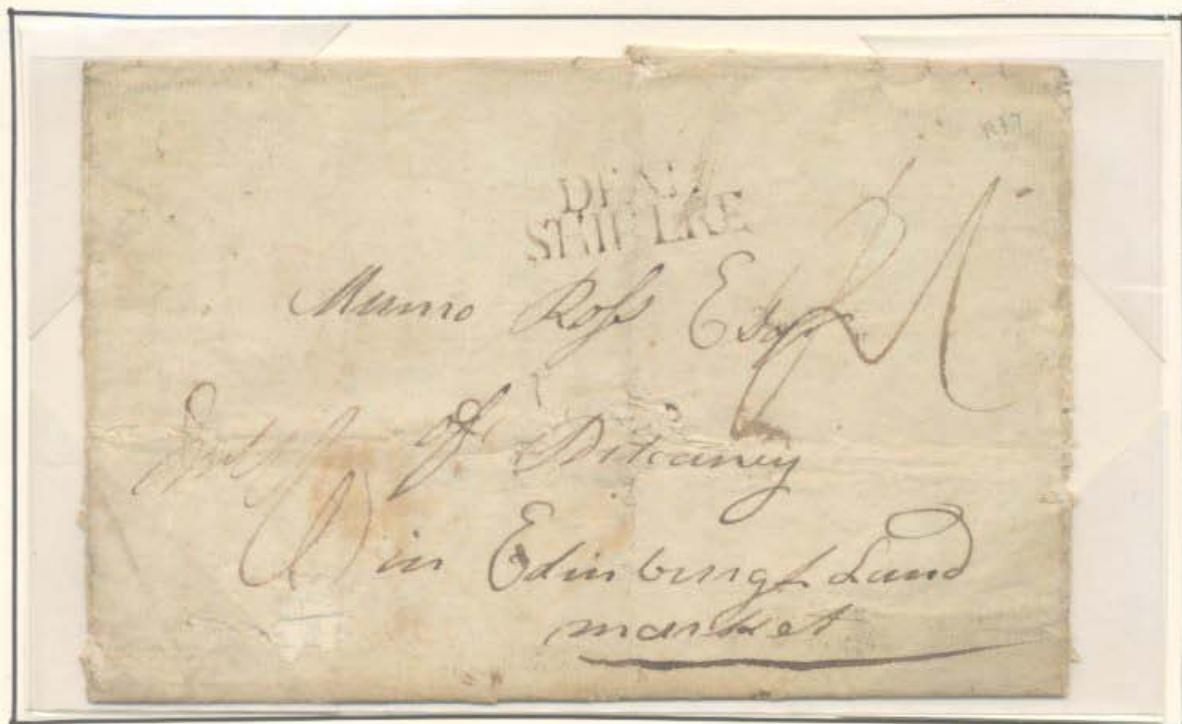 DEAL
SHIP LRE
Munro Ross Esqr
of Pitcauney
in Edinburgh Land
market